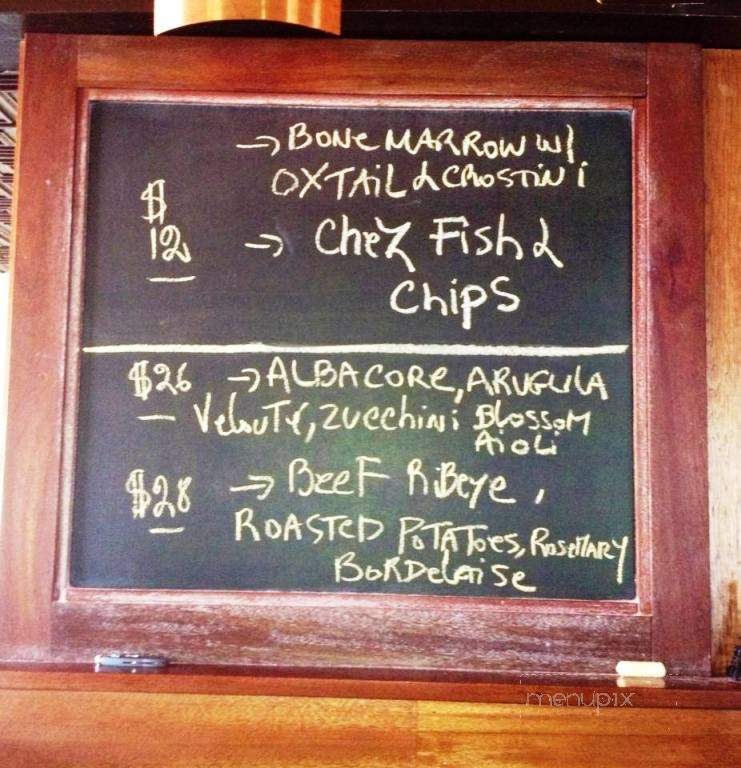 → BONE MARROW w/
OXTAIL & CROSTINI
$
12 → Chez Fish &
Chips
$26 → ALBACORE, ARUGULA
Veloute, Zucchini Blossom
Aioli
$28 → Beef Ribeye,
ROASTED POTATOES, ROSEMARY
BORDELAISE
menupix